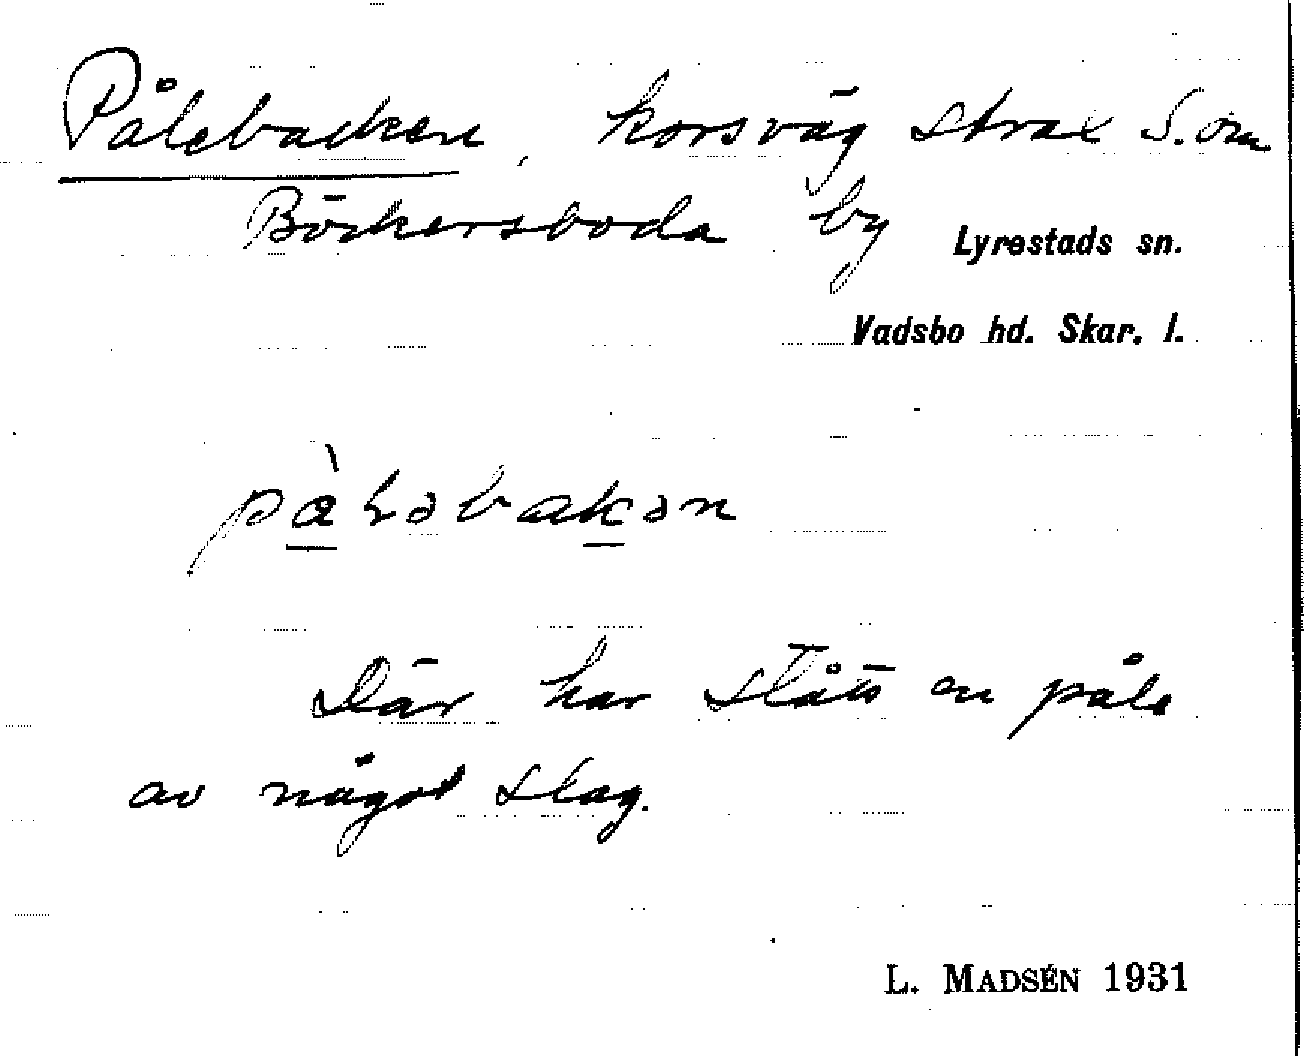 Pålebacken, korsväg strax S. om
Böckersboda by
Lyrestads sn.
Vadsbo hd. Skar. l.
pàləbakən
Där har stått en påle
av något slag.
L. MADSÉN 1931